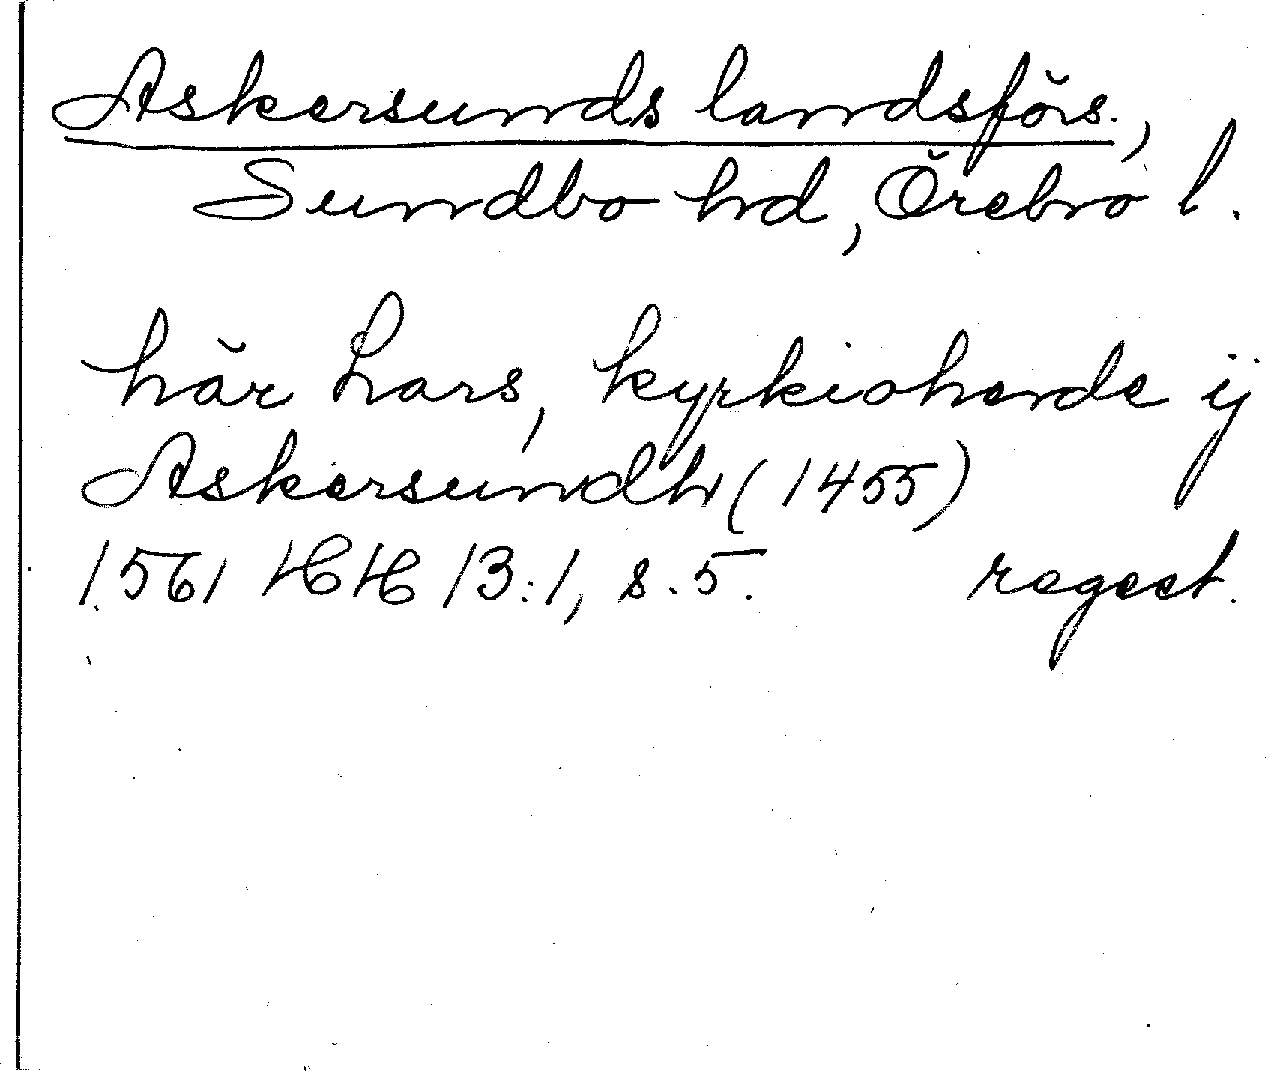 Askersunds landsförs.,
Sundbo hd, Örebro l.
här Lars, kyrkioherde ij
Askersundh (1455)
1561 HH 13:1, s. 5. regest.